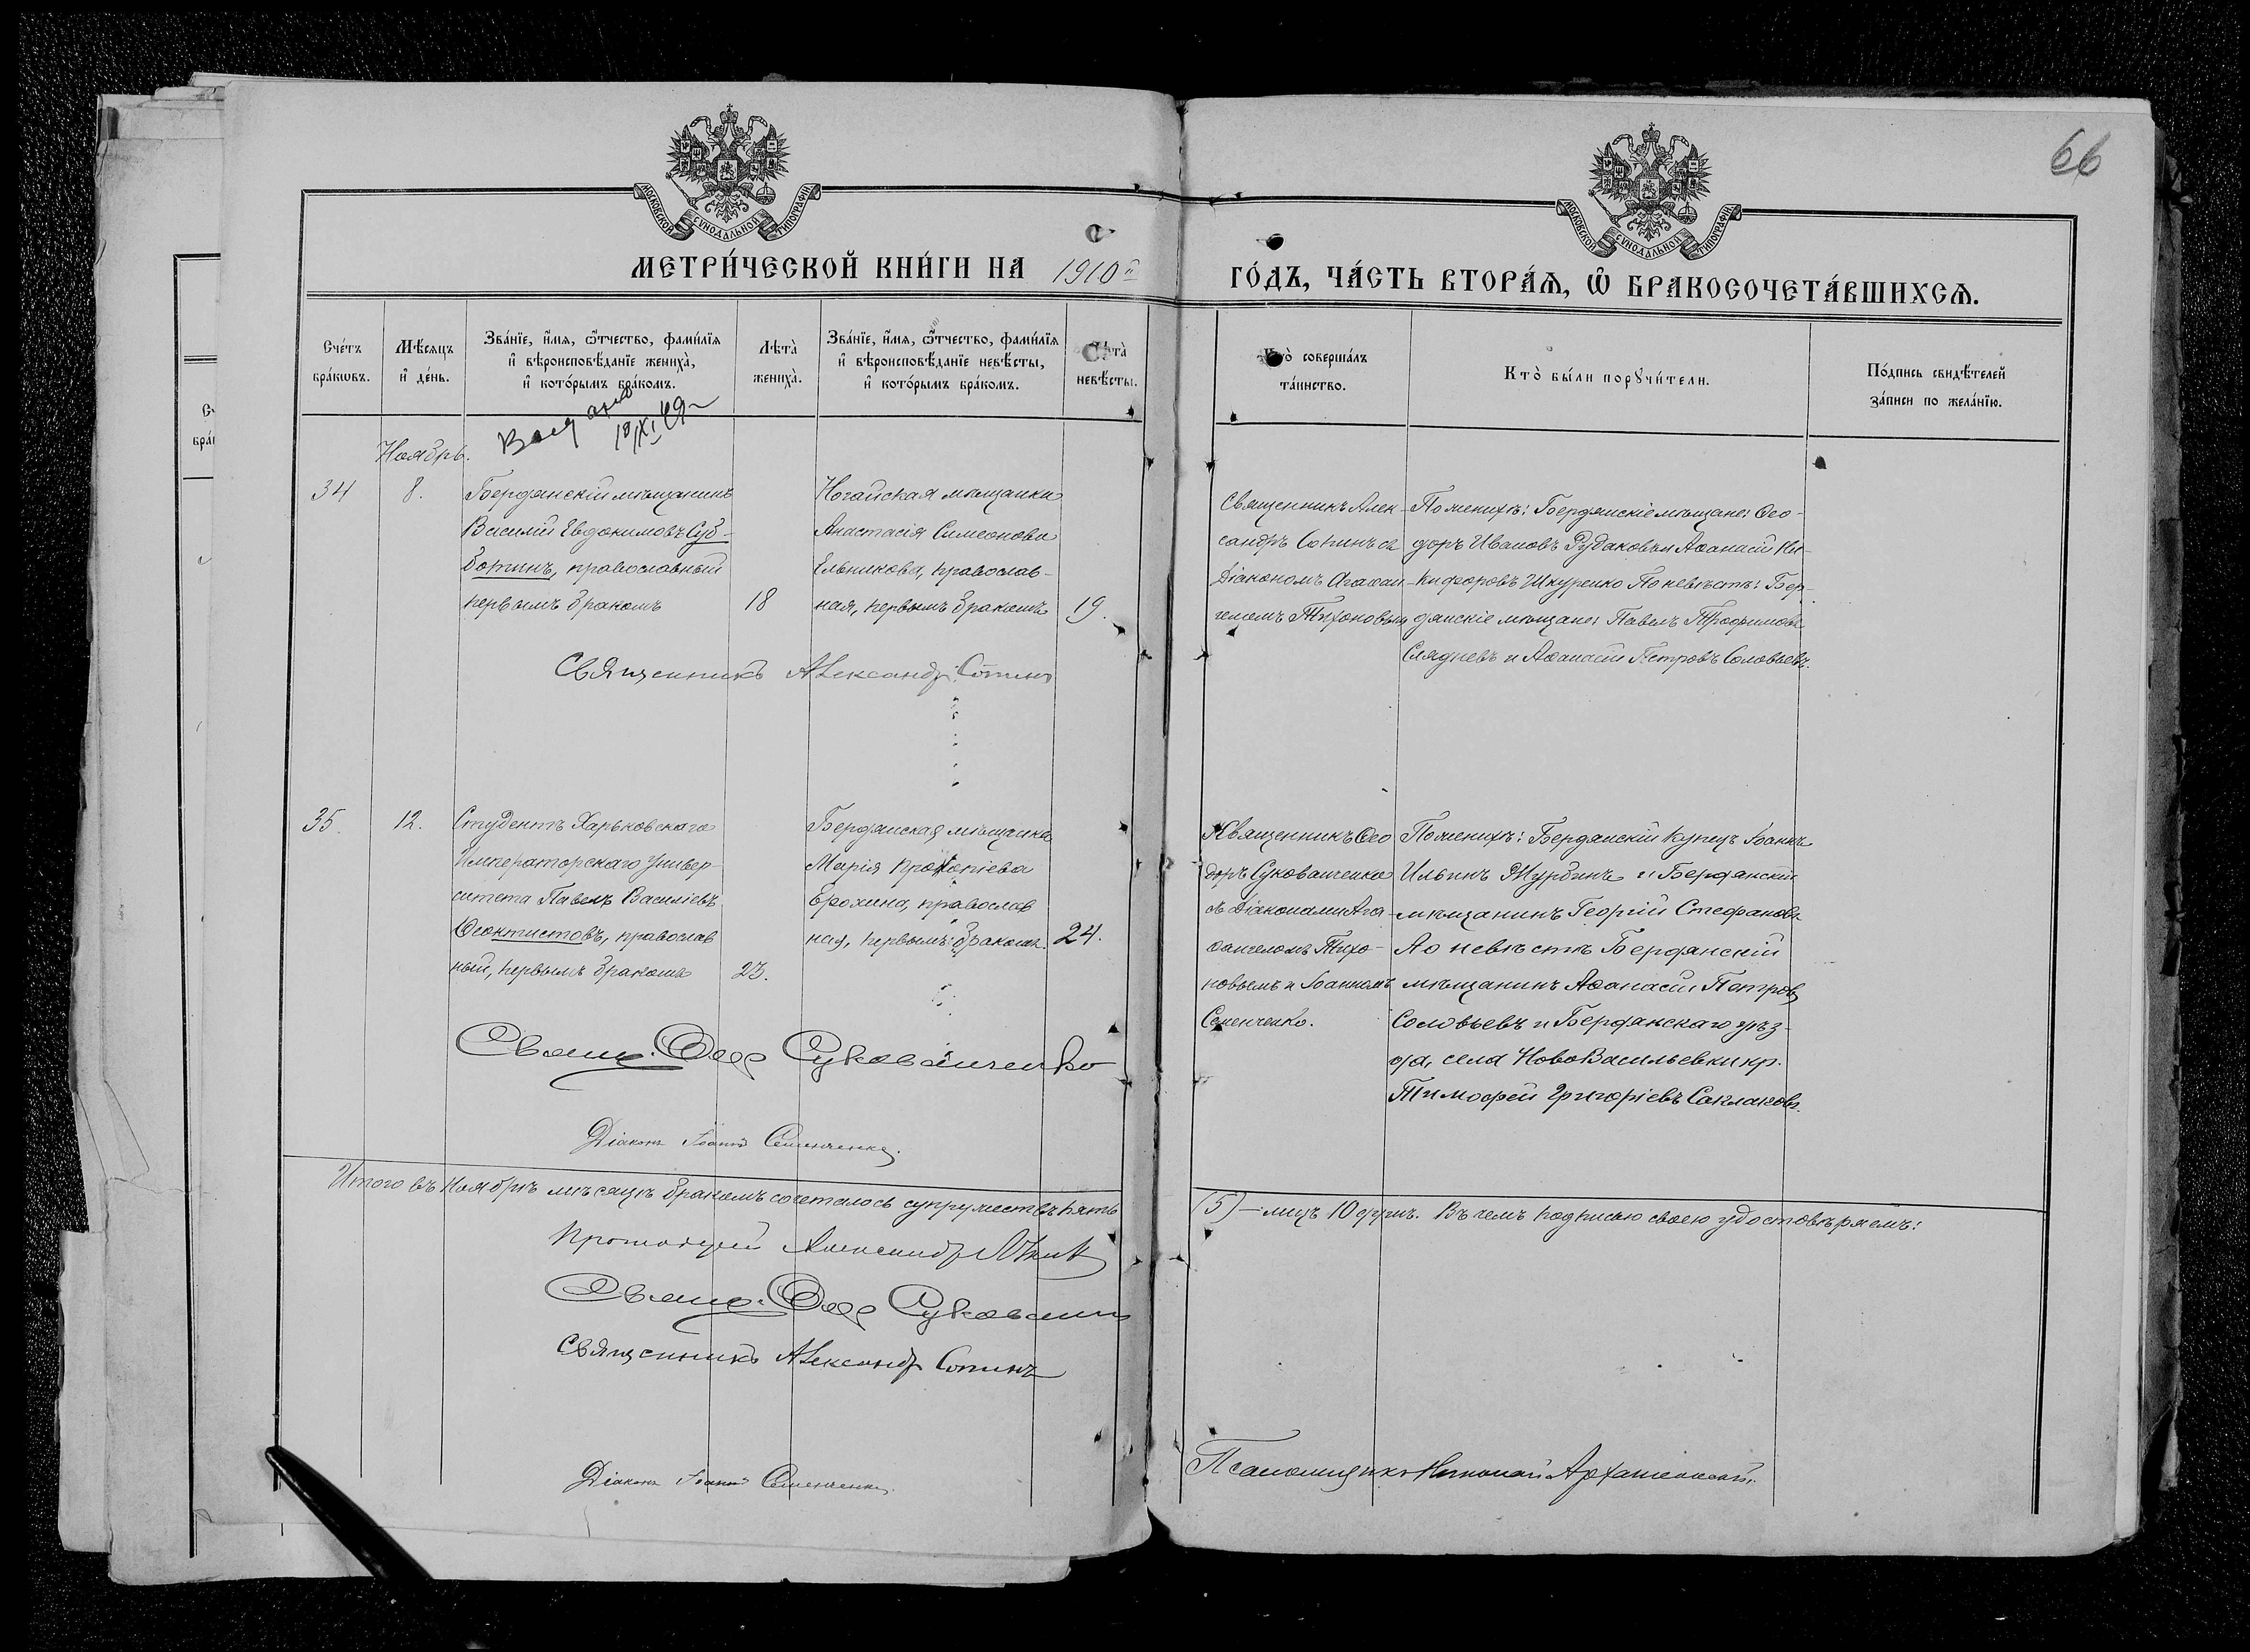 66
МОСКОВСКОЙ СУНОДАЛЬНОЙ ТИПОГРАФІИ
МОСКОВСКОЙ СУНОДАЛЬНОЙ ТИПОГРАФІИ
МЕТРИ́ЧЕСКОЙ КНИ́ГИ НА 1910й
ГО́ДЪ, ЧА́СТЬ ВТОРА́Ѧ, Ѡ҆ БРАКОСОЧЕТА́ВШИХСѦ.
Сче́тъ бра́кѡвъ.
Мѣ́сяцъ и҆ де́нь.
Зва́нїе, и҆́мя, ѻ҆́тчество, фами́лїя и҆ вѣроисповѣ́данїе жениха̀, и҆ кото́рымъ бра́комъ.
Лѣта̀ жениха̀.
Зва́нїе, и҆́мя, ѻ҆́тчество, фами́лїя и҆ вѣроисповѣ́данїе невѣ́сты, и҆ кото́рымъ бра́комъ.
Лѣта̀ невѣ́сты.
Кто̀ соверша́лъ та́инство.
Кто̀ бы́ли порꙋчи́тели.
По́дпись свидѣ́телей за́писи по жела́нїю.
Ноябрь.
34
8.
Бердянскій мѣщанинъ
Василій Евдокимовъ Суб-
ботинъ, православный
первымъ бракомъ
18
Ногайская мѣщанка
Анастасія Симеонова
Ельникова, православ-
ная, первымъ бракомъ
19.
Священникъ Алек-
сандръ Сопинъ съ
Діакономъ Агаѳан-
геломъ Тихоновымъ
По женихѣ: Бердянскіе мѣщане: Ѳео-
доръ Ивановъ Рудаковъ и Аѳанасій Ни-
кифоровъ Шкуренко По невѣстѣ: Бер-
дянскіе мѣщане: Павелъ Трофимовъ
Слядневъ и Аѳанасій Петровъ Соловьевъ.
Священникъ Александръ Сопинъ
35.
12.
Студентъ Харьковскаго
Императорскаго Универ-
ситета Павелъ Василіевъ
Ѳеоктистовъ, православ
ный, первымъ бракомъ
23.
Бердянская мѣщанка
Марія Прокопіева
Ерохина, православ
ная, первымъ бракомъ.
24.
Священникъ Ѳео
доръ Суковатченко
съ Діаконами Ага-
ѳангеломъ Тихо-
новымъ и Іоанномъ
Семенченко.
По женихѣ: Бердянскій купецъ Іоаннъ
Ильинъ Журбинъ и Бердянскій
мѣщанинъ Георгій Стефановъ
По невѣстѣ Бердянскій
мѣщанинъ Аѳанасій Петровъ
Соловьевъ и Бердянскаго уѣз-
да, села Ново Васильевки кр.
Тимофей Григоріевъ Саклаковъ.
Свящ. Ѳеод Суковатченко
Діаконъ Іоаннъ Семенченко.
Итого въ Ноябрѣ мѣсяцѣ бракомъ сочеталось супружествъ пять
(5) — лицъ 10 душъ. Въ чемъ подписью своею удостовѣряемъ:
Протоіерей Александръ
Свящ. Ѳеод Суковатч
Священникъ Александръ Сопинъ
Діаконъ Іоаннъ Семенченко.
Псаломщикъ Николай